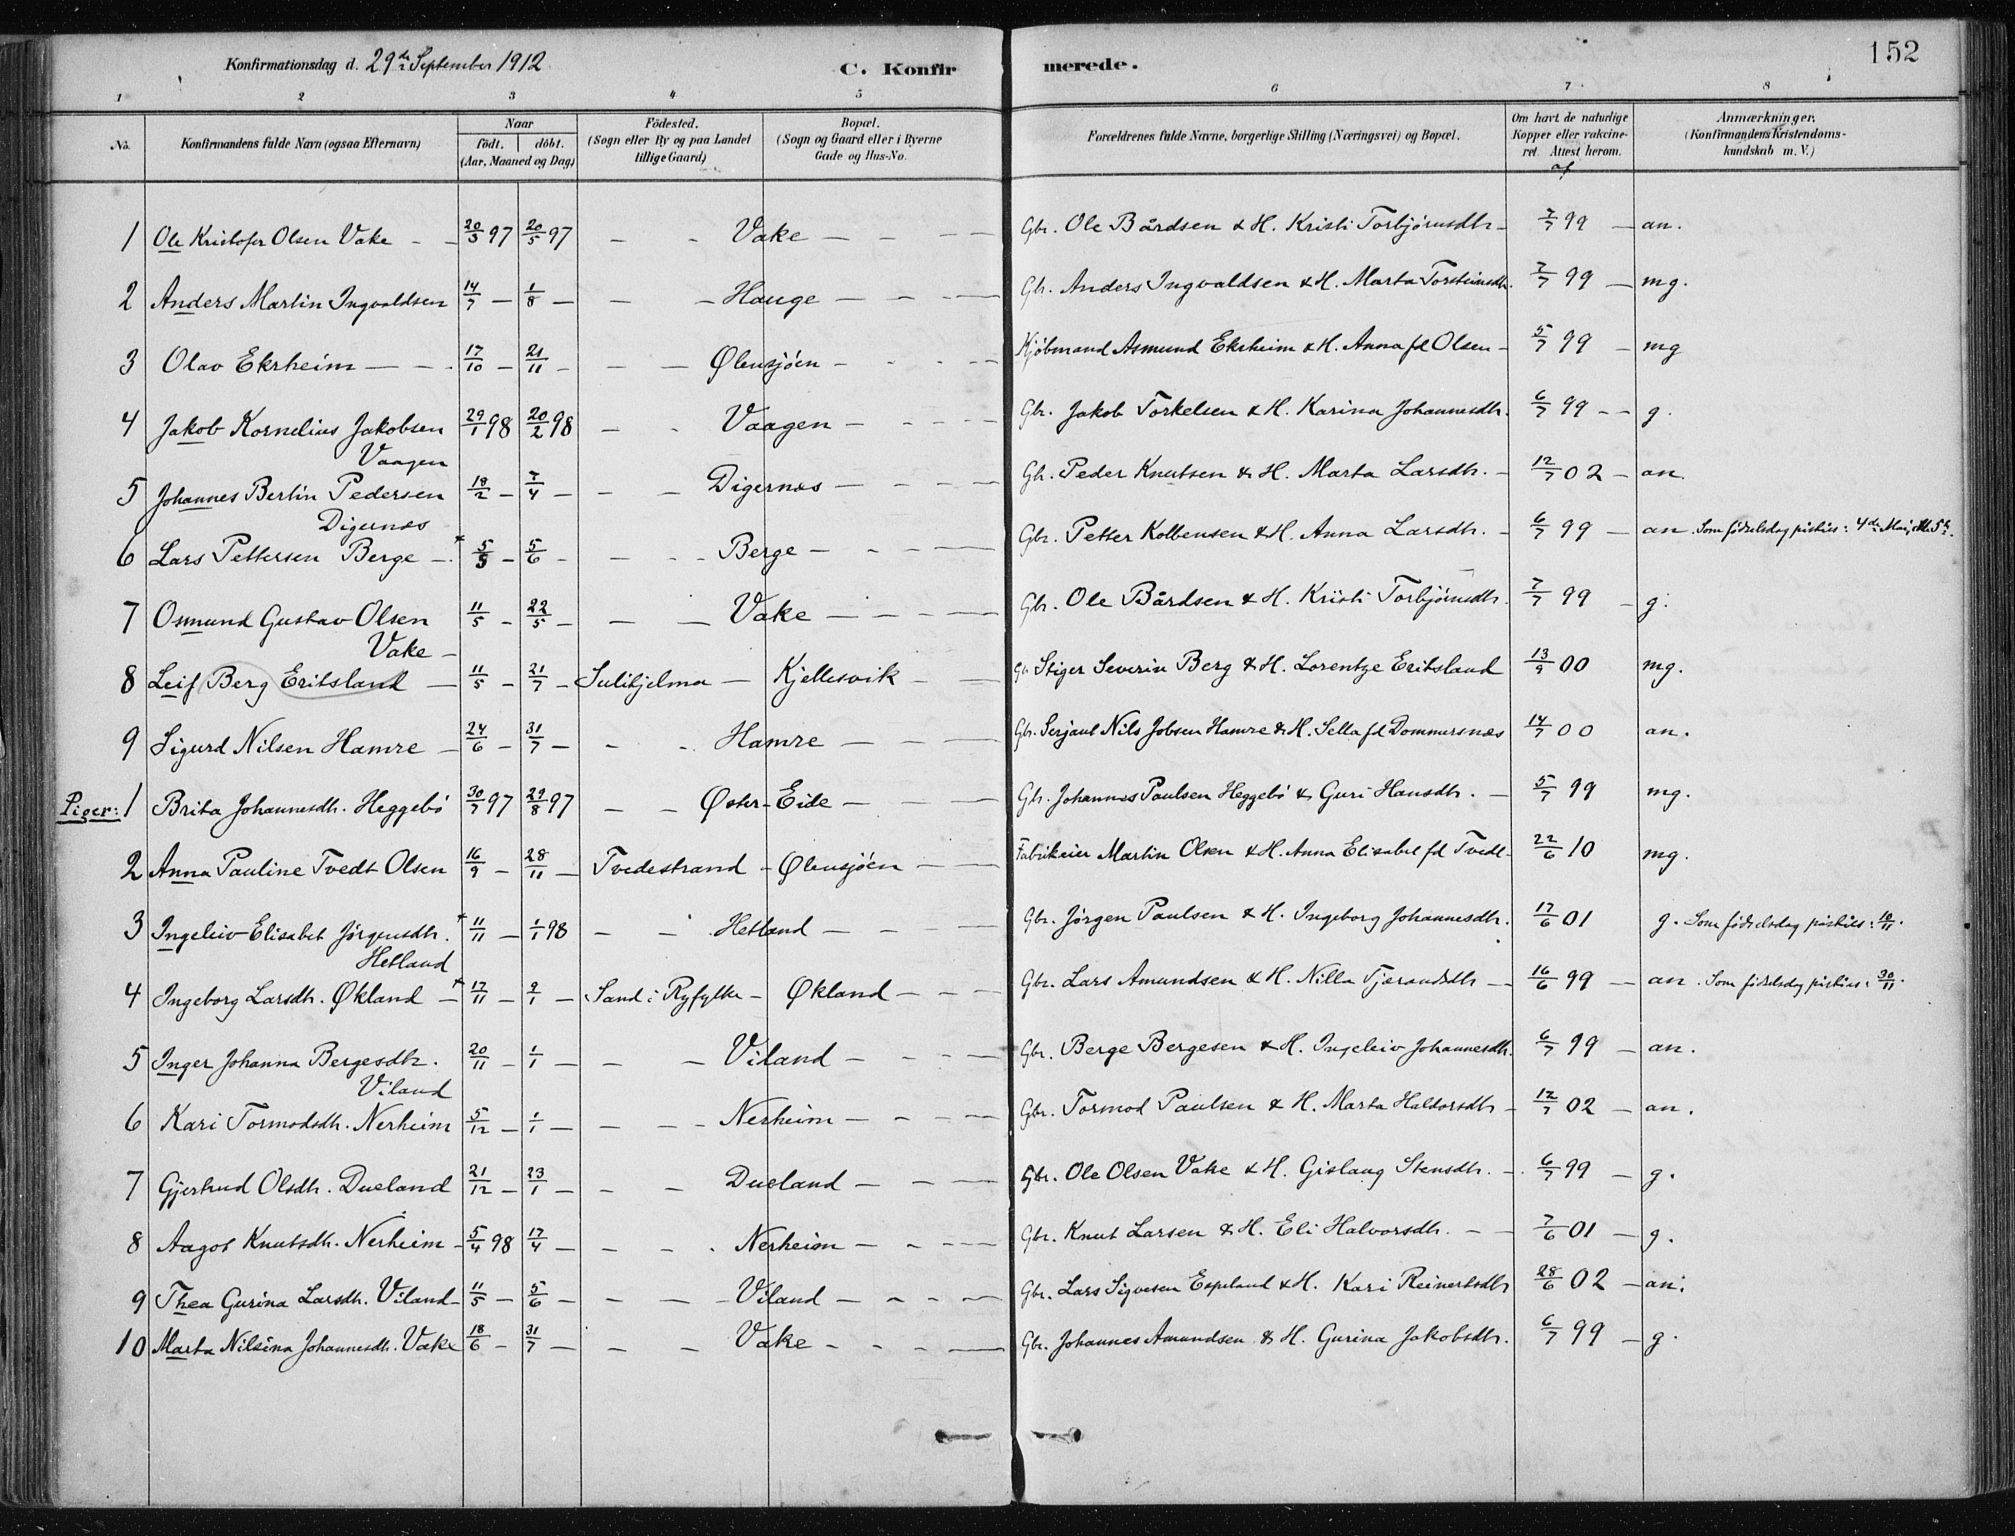 152
Konfirmationsdag d. 29de September 1912
C. Konfirmerede.
1 2 3 4 5 6 7 8
No. Konfirmandens fulde Navn (ogsaa Efternavn) Naar født. døbt. (Aar, Maaned og Dag) Fødested. (Sogn eller By og paa Landet tillige Gaard) Bopæl. (Sogn og Gaard eller i Byerne Gade og Hus-No. Forældrenes fulde Navne, borgerlige Stilling (Næringsvei) og Bopæl. Om havt de naturlige Kopper eller vakcineret. Attest herom. af Anmærkninger. (Konfirmandens Kristendomskundskab m. V.)
1 Ole Kristofer Olsen Vake - - 20/3 97 20/5 97 - - Vake - - - Gbr. Ole Bårdsen & H. Kristi Torbjørnsdtr - 7/7 99 - an.
2 Anders Martin Ingvaldsen 14/7 - 1/8 - - - Hauge - - - Gbr. Anders Ingvaldsen & H. Marta Torsteinsdtr. 7/7 99 - mg.
3 Olav Ekrheim - - 17/10 - 21/11 - - - Ølensjøen - - - Kjøbmand Asmund Ekrheim & H. Anna fd Olsen - 5/7 99 - mg
4 Jakob Kornelius Jakobsen 29/1 98 20/2 98 - - Vaagen - - - Gbr. Jakob Torkelsen & H. Karina Johannesdtr. 6/7 99 - - g.
Vaagen
5 Johannes Bertin Pedersen 18/2 - 7/4 - - - Digernes - - - Gbr. Peder Knutsen & H. Marta Larsdtr. - 12/7 02 - an
Digernes
6 Lars Pettersen Berge - * 5/5 - 5/6 - - - Berge - - - Gbr. Petter Kolbensen & H. Anna Larsdtr. - 6/7 99 - an. Som fødselsdag påstås: 4de Mai,
7 Osmund Gustav Olsen 11/5 - 22/5 - - - Vake - - - Gbr. Ole Bårdsen & H. Kristi Torbjørnsdtr. 7/7 99 - g.
Vake -
8 Leif Berg Eritsland - 11/5 - 21/7 - Sulitjelma - Kjellesvik - - Gbr Stiger Severin Berg & H. Lorentze Eritsland 13/9 00 mg.
9 Sigurd Nilsen Hamre - 24/6 - 31/7 - - - Hamre - - - Gbr. Serjant Nils Jobsen Hamre & H. Sella fd Dommersnes 14/7 00 an.
Piger: 1 Brita Johannesdtr. Heggebö 30/7 97 29/8 97 - - Øster-Eide - - - Gbr. Johannes Paulsen Heggebö & Guri Hansdtr. - 5/7 99 mg.
2 Anna Pauline Tvedt Olsen 16/9 - 28/11 - Tvedestrand - Ølensjøen - - Fabrikeier Martin Olsen & H. Anna Elisabet fd Tvedt - 22/6 10 mg.
3 Ingeleiv Elisabet Jørgensdtr. * 11/11 - 1/1 98 - - Hetland - - - Gbr. Jørgen Paulsen & H. Ingeborg Johannesdtr. 17/6 01 g. Som fødselsdag påstås: 10/11.
Hetland
4 Ingeborg Larsdtr. Økland - * 17/11 - 9/1 - Sand i Ryfylke - Økland - - - Gbr. Lars Amundsen & H. Nilla Tjerandsdtr - 16/6 99 - an. Som fødselsdag påstås: 30/11.
5 Inger Johanna Bergesdtr. 20/11 - 1/1 - - - Viland - - - Gbr. Berge Bergesen & H. Ingeleiv Johannesdtr. 6/7 99 - an.
Viland
6 Kari Tormodsdtr. Nerheim 5/12 - 1/1 - - - Nerheim - - - Gbr. Tormod Paulsen & H. Marta Haldorsdtr - 12/7 02 - an.
7 Gjertrud Olsdtr. Dueland 21/12 - 23/1 - - - Dueland - - - Gbr. Ole Olsen Vake & H. Gislaug Stensdtr. - 6/7 99 - g.
8 Aagot Knutsdtr. Nerheim - 5/4 98 17/4 - - - Nerheim - - - Gbr. Knut Larsen & H. Eli Halvorsdtr. - - 7/6 01 - g.
9 Thea Gurina Larsdtr. Viland - 11/5 - 5/6 - - - Viland - - - Gbr. Lars Sigvesen Espeland & H. Kari Reinertsdtr 28/6 02 - an.
10 Marta Nilsina Johannesdtr. Vake 18/6 - 31/7 - - - Vake - - - Gbr. Johannes Amundsen & H. Gurina Jakobsdtr. 6/7 99 - g.